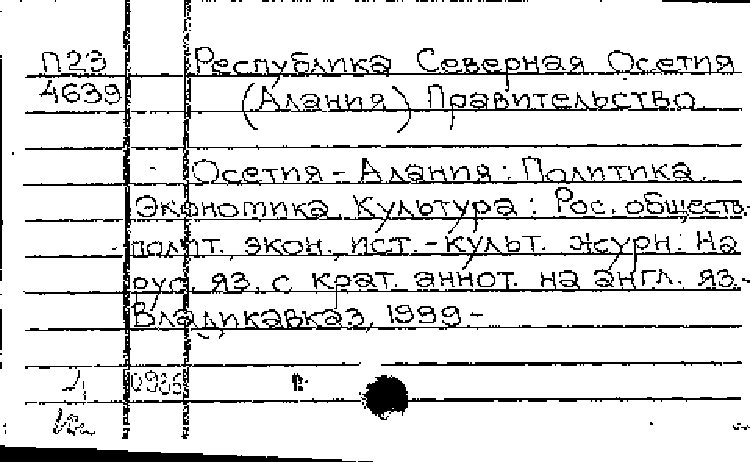 П23 Республика Северная Осетия
4639 (Алания) Правительство.
Осетия - Алания: Политика.
Экономика. Культура: Рос. обществ.-
полит., экон., ист.-культ. журн. На
рус. яз. с крат. аннот. на англ. яз.-
Владикавказ, 1999.-
0986